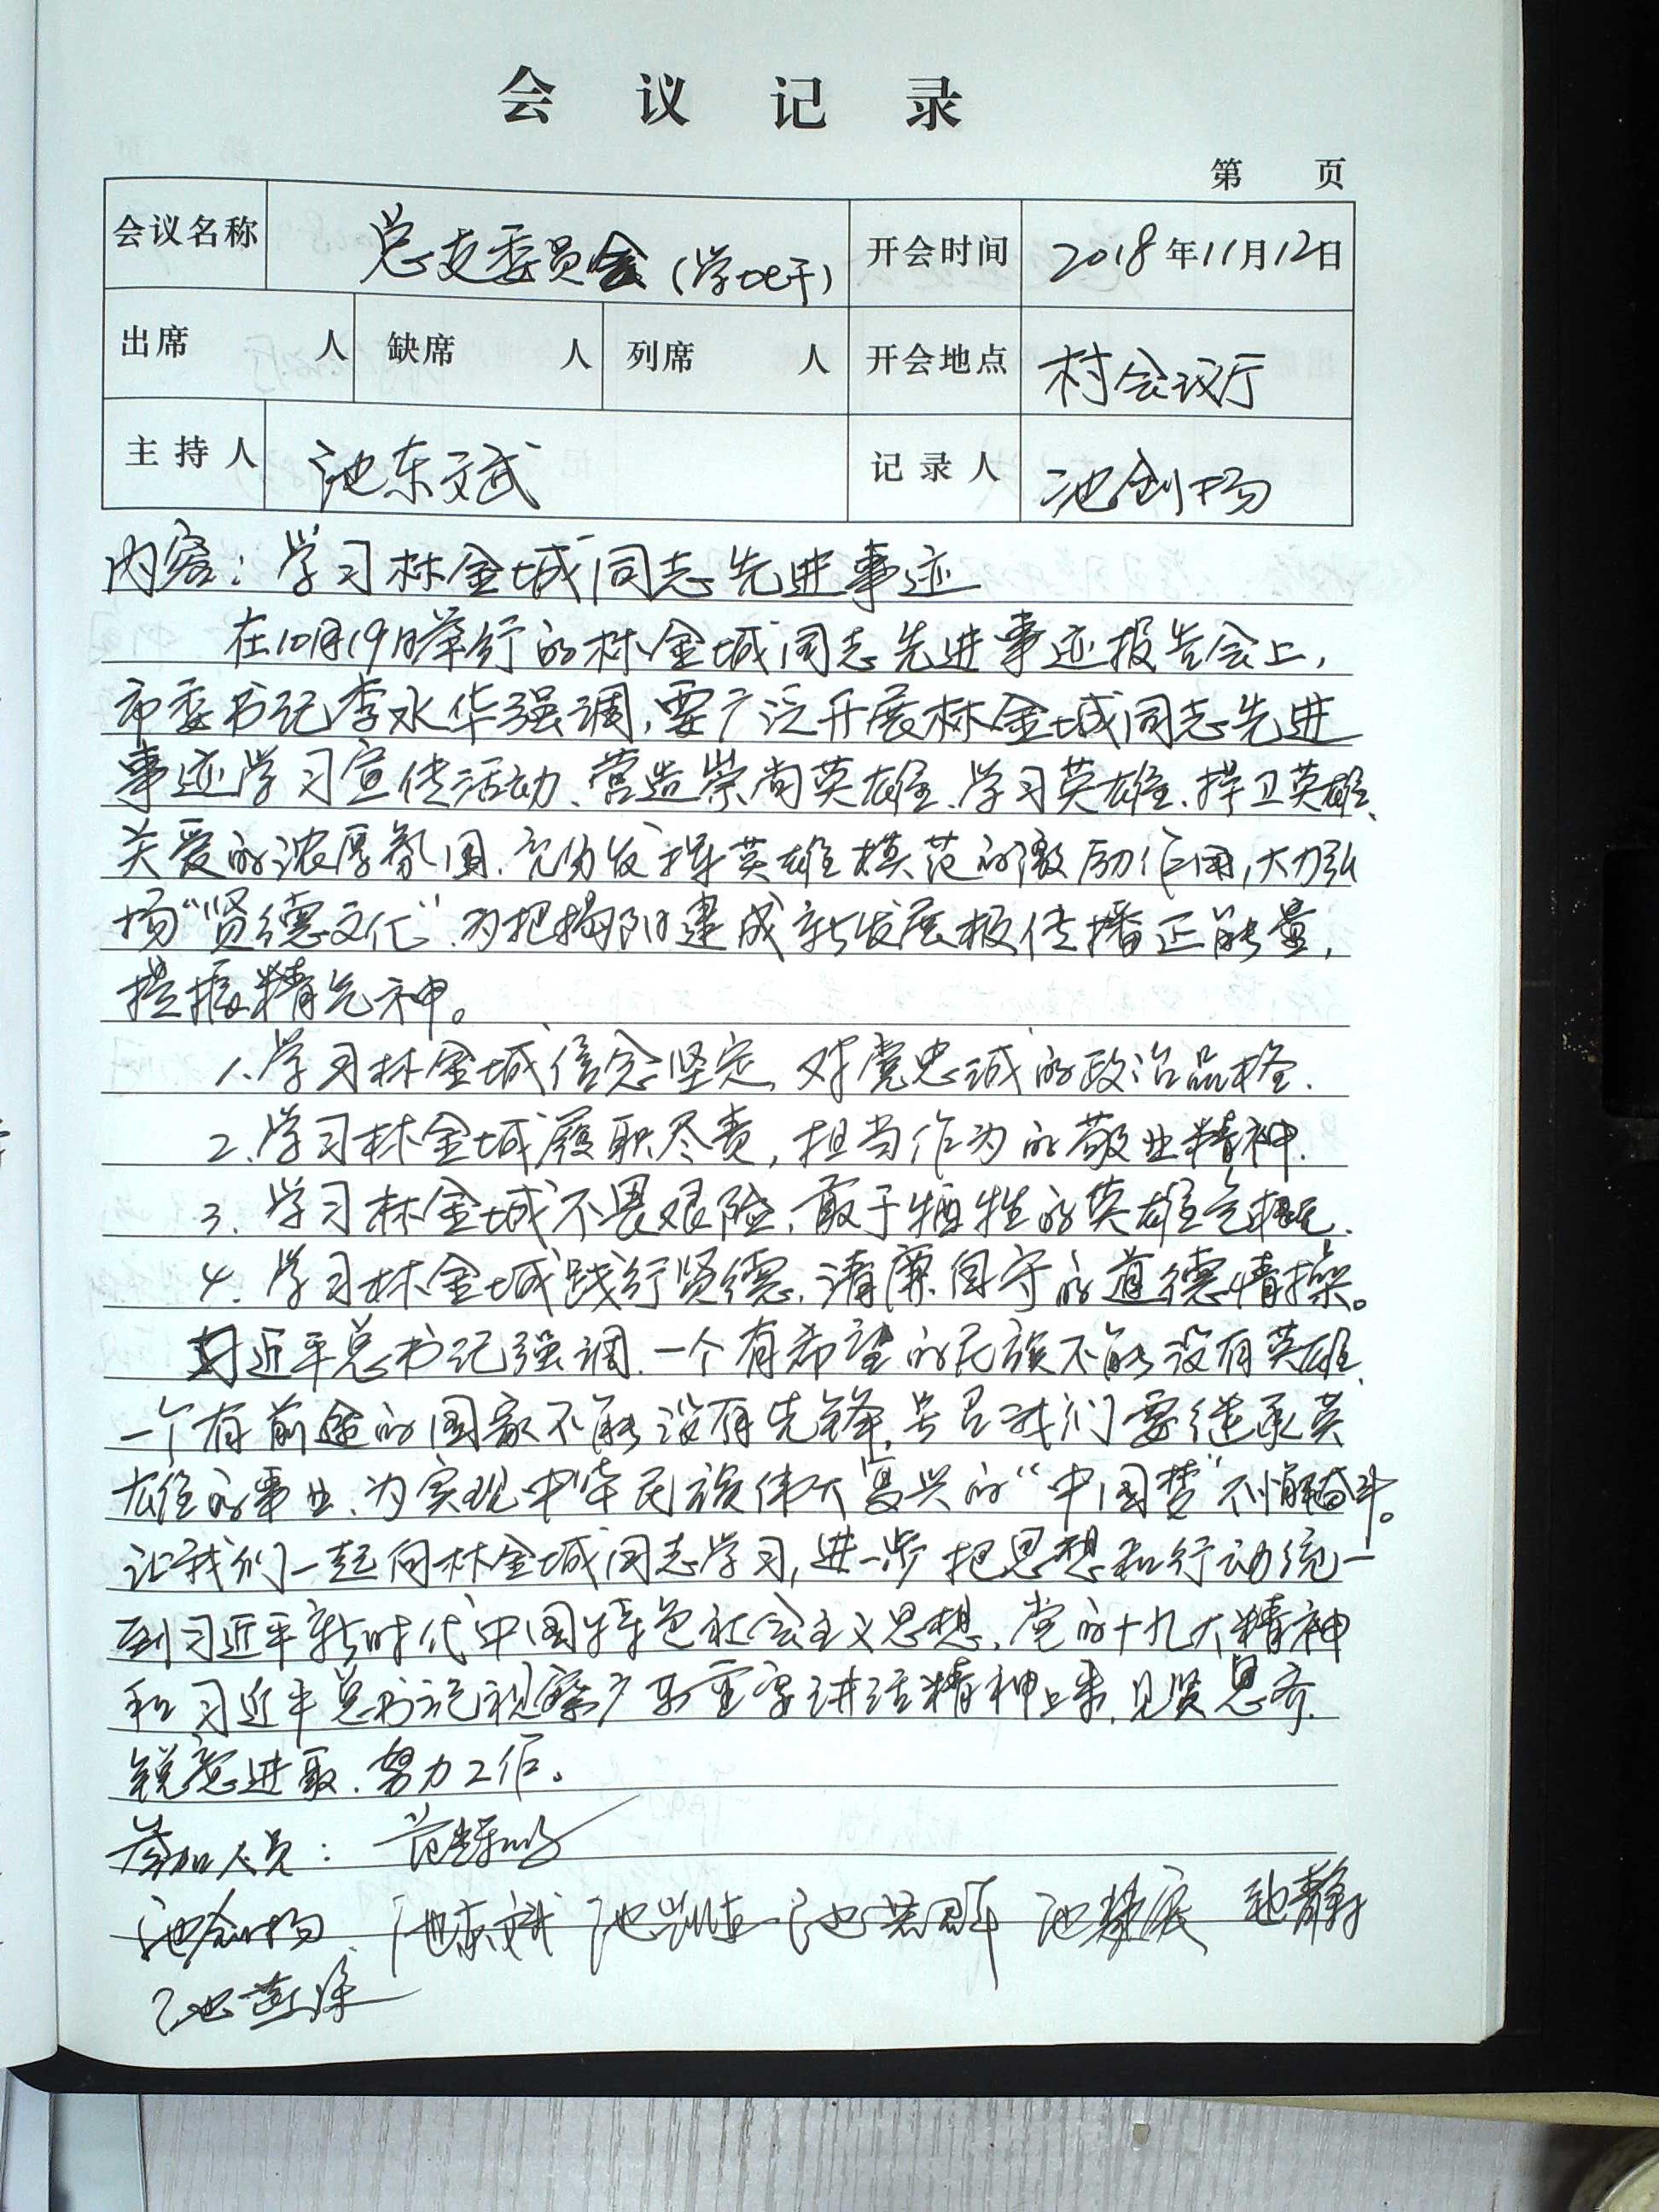 会议记录
第 页
会议名称 总支委员会(学 开会时间 2018年11月12日
出席 人 缺席 人 列席 人 开会地点 村会议厅
主持人 池东斌 记录人 池剑扬
内容:学习林金城同志先进事迹
在10月19日举行的林金城同志先进事迹报告会上,
市委书记李水华强调,要广泛开展林金城同志先进
事迹学习宣传活动、营造崇尚英雄、学习英雄、捍卫英雄、
关爱的浓厚氛围,充分发挥英雄模范的激励作用,大力弘
扬“贤德文化”,为把揭阳建成新发展极传播正能量,
提振精气神。
1、学习林金城信念坚定,对党忠诚的政治品格.
2、学习林金城履职尽责,担当作为的敬业精神.
3、学习林金城不畏艰险,敢于牺牲的英雄气概.
4、学习林金城践行贤德,清廉自守的道德情操。
习近平总书记强调,一个有希望的民族不能没有英雄,
一个有前途的国家不能没有先锋,号召我们要继承英
雄的事业,为实现中华民族伟大复兴的“中国梦”不懈奋斗。
让我们一起向林金城同志学习,进一步把思想和行动统一
到习近平新时代中国特色社会主义思想,党的十九大精神
和习近平总书记视察广东重要讲话精神上来,见贤思齐,
锐意进取,努力工作。
参加人员:
池剑扬 池东斌